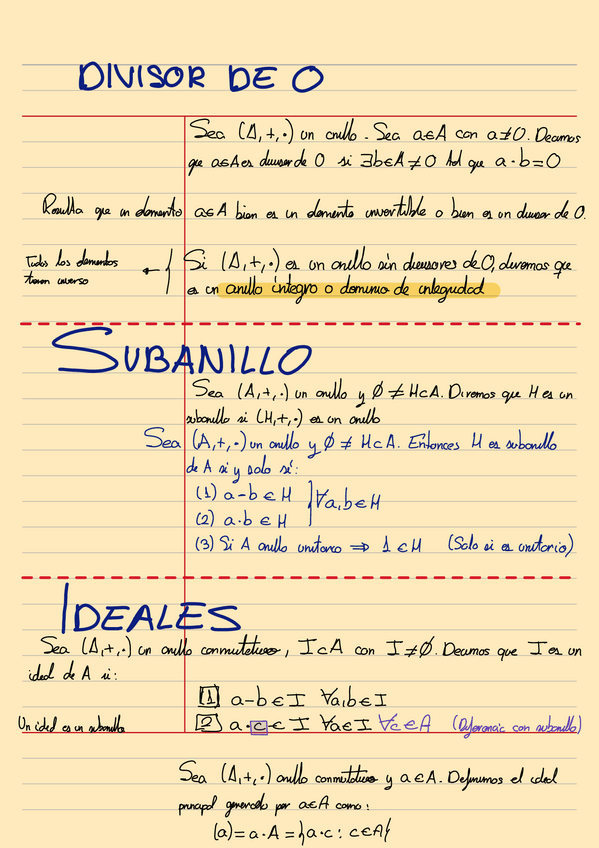 DIVISOR DE 0
Sea (A,+,·) un anillo. Sea a∈A con a≠0. Decimos
que a∈A es divisor de 0 si ∃b∈A≠0 tal que a·b=0
Resulta que un elemento a∈A bien es un elemento invertible o bien es un divisor de 0.
Todos los elementos
tienen inverso
Si (A,+,·) es un anillo sin divisores de 0, diremos que
es un anillo íntegro o dominio de integridad
SUBANILLO
Sea (A,+,·) un anillo y Ø≠H⊂A. Diremos que H es un
subanillo si (H,+,·) es un anillo
Sea (A,+,·) un anillo y Ø≠H⊂A. Entonces H es subanillo
de A si y solo si:
(1) a-b∈H
(2) a·b∈H } ∀a,b∈H
(3) Si A anillo unitario ⇒ 1∈H (Solo si es unitario)
IDEALES
Sea (A,+,·) un anillo conmutativo, I⊂A con I≠Ø. Decimos que I es un
ideal de A si:
1 a-b∈I ∀a,b∈I
Un ideal es un subanillo 2 a·c∈I ∀a∈I ∀c∈A (Diferencia con subanillo)
Sea (A,+,·) anillo conmutativo y a∈A. Definimos el ideal
principal generado por a∈A como:
(a)=a·A={a·c: c∈A}